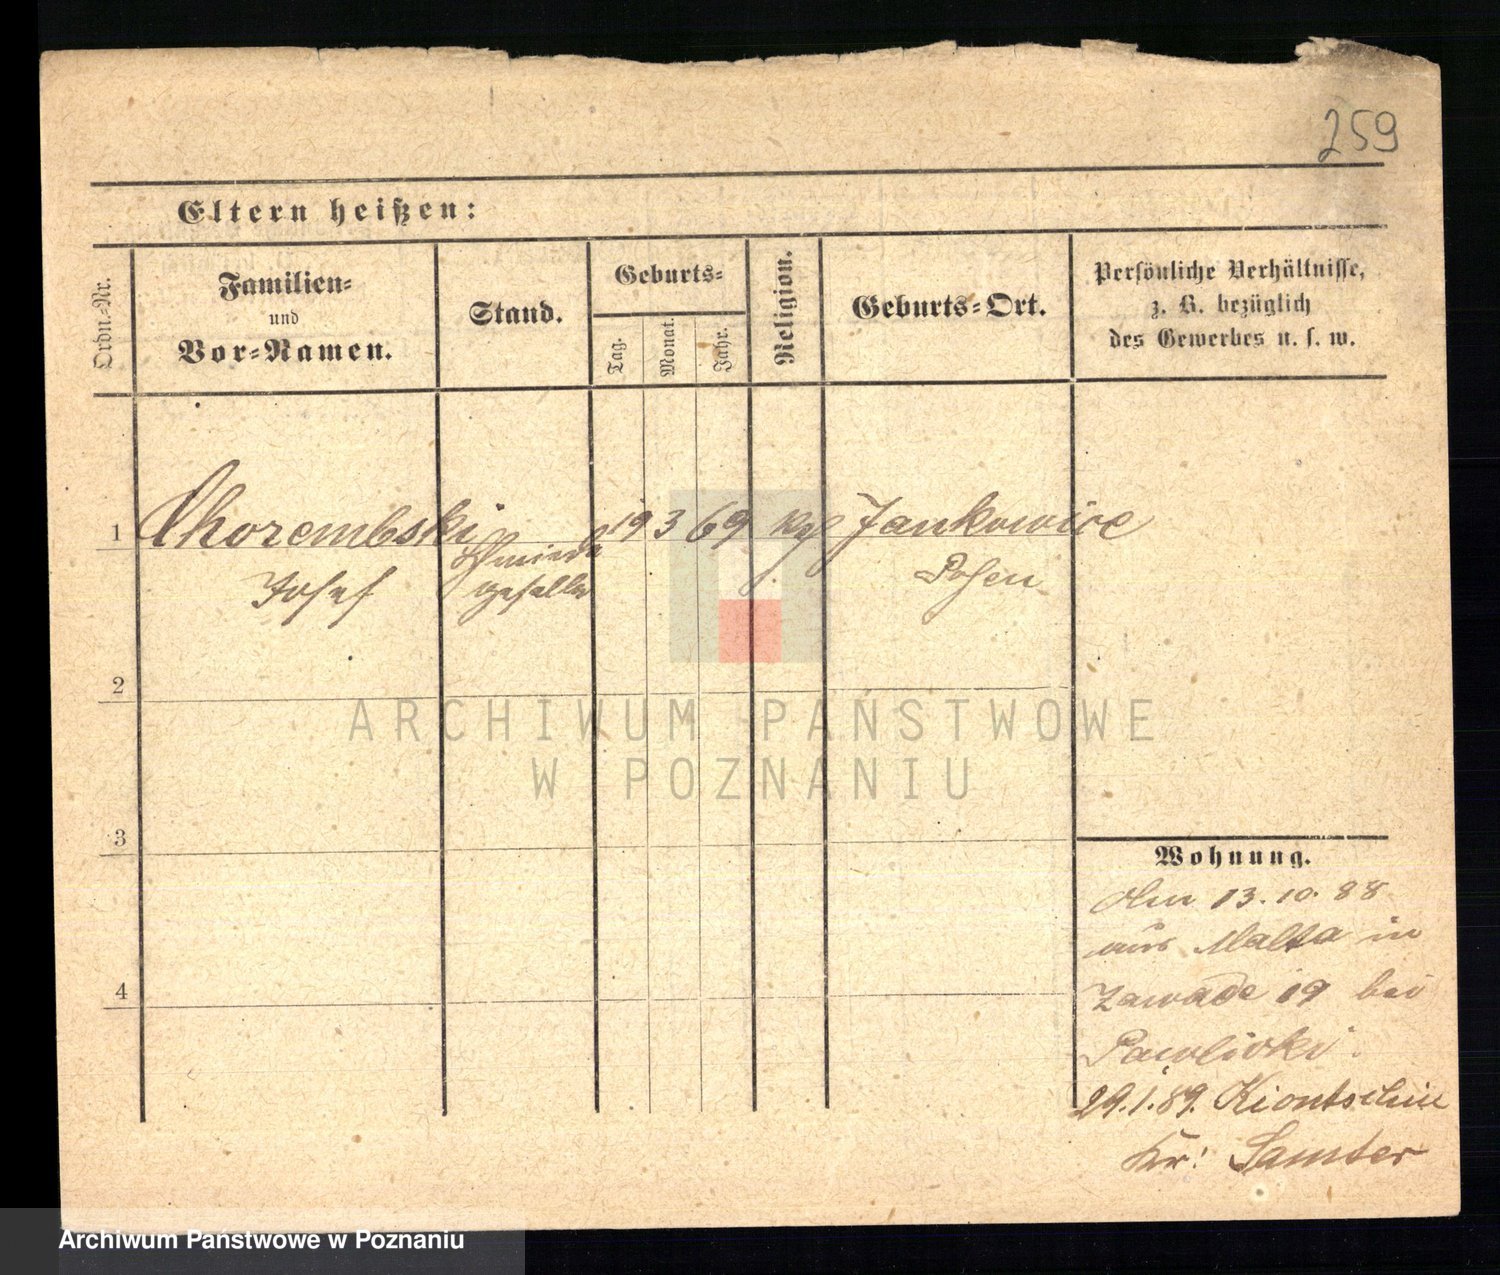 259
Eltern heißen:
Ordn.-Nr.
Familien-
und
Vor-Namen.
Stand.
Geburts-
Tag.
Monat.
Jahr.
Religion.
Geburts-Ort.
Persönliche Verhältnisse,
z. B. bezüglich
des Gewerbes u. s. w.
1 Chorembski 19 3 69 Jankowice
Josef Schmiede Posen
geselle
2
3
4
ARCHIWUM PAŃSTWOWE
W POZNANIU
Wohnung.
13.10.88
aus Malta in
Zawade 19 bei
Pawlicki.
29.1.89. Kiontschin
Kr: Samter
Archiwum Państwowe w Poznaniu